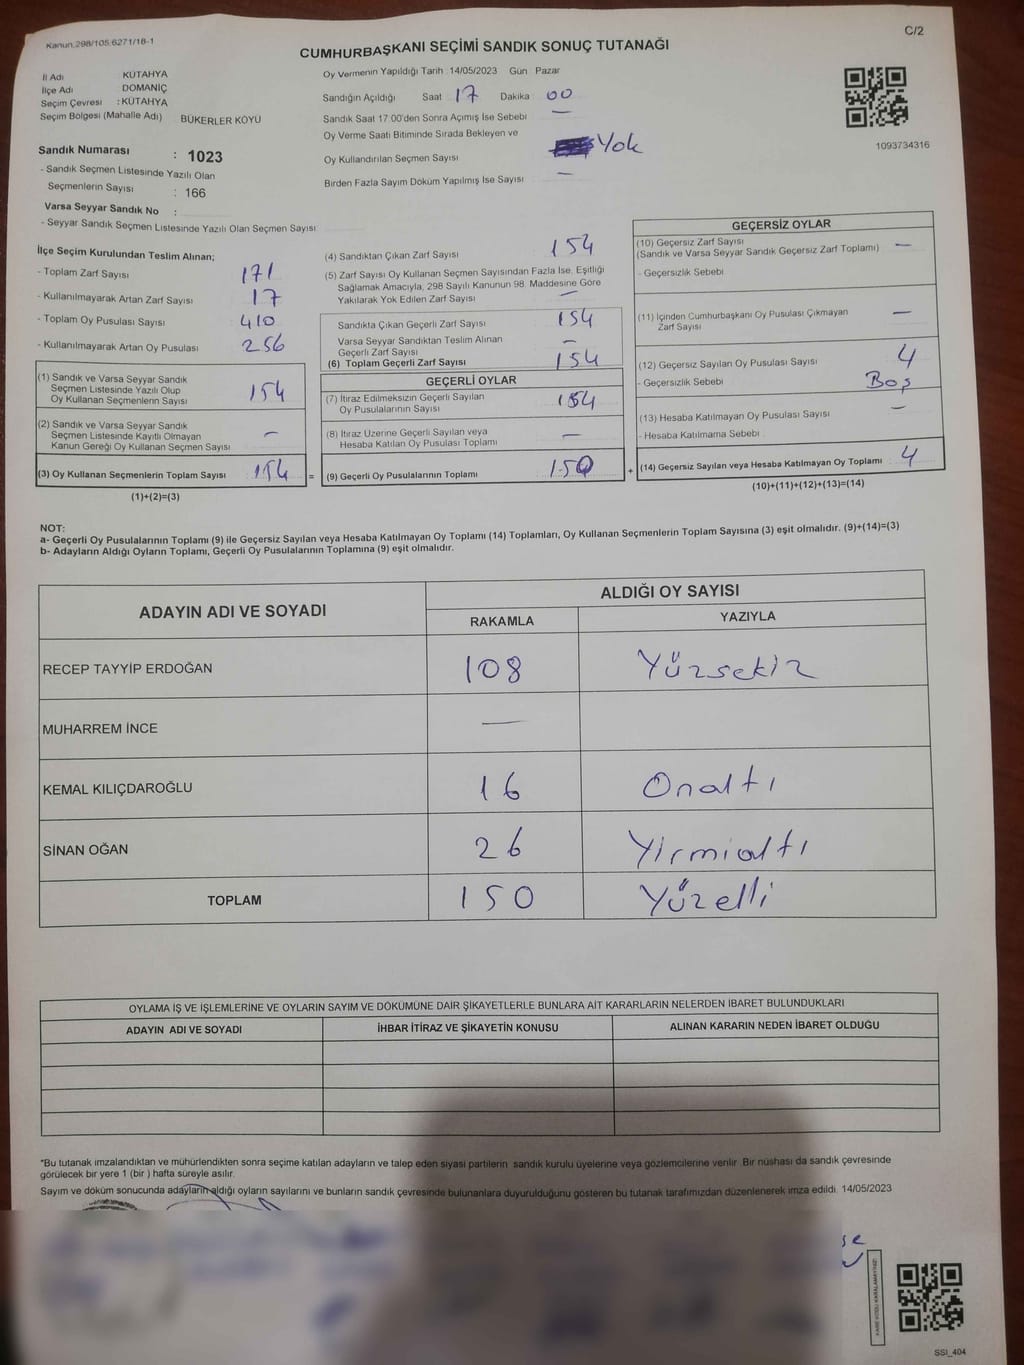 Kanun.298/105.6271/18-1
C/2
CUMHURBAŞKANI SEÇİMİ SANDIK SONUÇ TUTANAĞI
İl Adı KÜTAHYA
İlçe Adı DOMANİÇ
Seçim Çevresi : KÜTAHYA
Seçim Bölgesi (Mahalle Adı) BÜKERLER KÖYÜ
Oy Vermenin Yapıldığı Tarih 14/05/2023 Gün Pazar
Sandığın Açıldığı Saat 17 Dakika 00
Sandık Saat 17:00'den Sonra Açımış İse Sebebi —
Oy Verme Saati Bitiminde Sırada Bekleyen ve
Oy Kullandırılan Seçmen Sayısı Yok
Birden Fazla Sayım Döküm Yapılmış İse Sayısı —
1093734316
Sandık Numarası : 1023
- Sandık Seçmen Listesinde Yazılı Olan
Seçmenlerin Sayısı : 166
Varsa Seyyar Sandık No :
- Seyyar Sandık Seçmen Listesinde Yazılı Olan Seçmen Sayısı
İlçe Seçim Kurulundan Teslim Alınan;
- Toplam Zarf Sayısı 171
- Kullanılmayarak Artan Zarf Sayısı 17
- Toplam Oy Pusulası Sayısı 410
- Kullanılmayarak Artan Oy Pusulası 256
(1) Sandık ve Varsa Seyyar Sandık
Seçmen Listesinde Yazılı Olup
Oy Kullanan Seçmenlerin Sayısı 154
(2) Sandık ve Varsa Seyyar Sandık
Seçmen Listesinde Kayıtlı Olmayan
Kanun Gereği Oy Kullanan Seçmen Sayısı —
(3) Oy Kullanan Seçmenlerin Toplam Sayısı 154 =
(1)+(2)=(3)
(4) Sandıktan Çıkan Zarf Sayısı 154
(5) Zarf Sayısı Oy Kullanan Seçmen Sayısından Fazla İse, Eşitliği
Sağlamak Amacıyla, 298 Sayılı Kanunun 98. Maddesine Göre
Yakılarak Yok Edilen Zarf Sayısı —
Sandıkta Çıkan Geçerli Zarf Sayısı 154
Varsa Seyyar Sandıktan Teslim Alınan
Geçerli Zarf Sayısı —
(6) Toplam Geçerli Zarf Sayısı 154
GEÇERLİ OYLAR
(7) İtiraz Edilmeksizin Geçerli Sayılan
Oy Pusulalarının Sayısı 154
(8) İtiraz Üzerine Geçerli Sayılan veya
Hesaba Katılan Oy Pusulası Toplamı —
(9) Geçerli Oy Pusulalarının Toplamı 150 +
GEÇERSİZ OYLAR
(10) Geçersiz Zarf Sayısı —
(Sandık ve Varsa Seyyar Sandık Geçersiz Zarf Toplamı)
- Geçersizlik Sebebi
(11) İçinden Cumhurbaşkanı Oy Pusulası Çıkmayan
Zarf Sayısı —
(12) Geçersiz Sayılan Oy Pusulası Sayısı 4
- Geçersizlik Sebebi Boş
(13) Hesaba Katılmayan Oy Pusulası Sayısı —
- Hesaba Katılmama Sebebi
(14) Geçersiz Sayılan veya Hesaba Katılmayan Oy Toplamı 4
(10)+(11)+(12)+(13)=(14)
NOT:
a- Geçerli Oy Pusulalarının Toplamı (9) ile Geçersiz Sayılan veya Hesaba Katılmayan Oy Toplamı (14) Toplamları, Oy Kullanan Seçmenlerin Toplam Sayısına (3) eşit olmalıdır. (9)+(14)=(3)
b- Adayların Aldığı Oyların Toplamı, Geçerli Oy Pusulalarının Toplamına (9) eşit olmalıdır.
ADAYIN ADI VE SOYADI
ALDIĞI OY SAYISI
RAKAMLA YAZIYLA
RECEP TAYYİP ERDOĞAN 108 Yüzsekiz
MUHARREM İNCE —
KEMAL KILIÇDAROĞLU 16 Onaltı
SİNAN OĞAN 26 Yirmialtı
TOPLAM 150 Yüzelli
OYLAMA İŞ VE İŞLEMLERİNE VE OYLARIN SAYIM VE DÖKÜMÜNE DAİR ŞİKAYETLERLE BUNLARA AİT KARARLARIN NELERDEN İBARET BULUNDUKLARI
ADAYIN ADI VE SOYADI İHBAR İTİRAZ VE ŞİKAYETİN KONUSU ALINAN KARARIN NEDEN İBARET OLDUĞU
*Bu tutanak imzalandıktan ve mühürlendikten sonra seçime katılan adayların ve talep eden siyasi partilerin sandık kurulu üyelerine veya gözlemcilerine verilir. Bir nüshası da sandık çevresinde
görülecek bir yere 1 (bir ) hafta süreyle asılır.
Sayım ve döküm sonucunda adayların aldığı oyların sayılarını ve bunların sandık çevresinde bulunanlara duyurulduğunu gösteren bu tutanak tarafımızdan düzenlenerek imza edildi. 14/05/2023
SSI_404